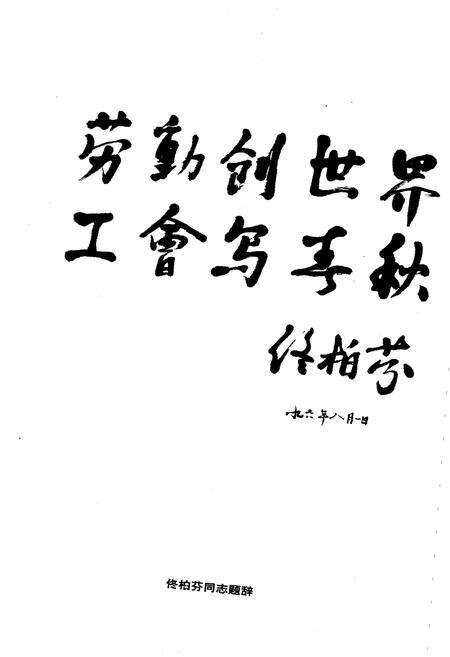 劳動创世界
工會写春秋
佟柏芬
九六年八月一日
佟柏芬同志题辞